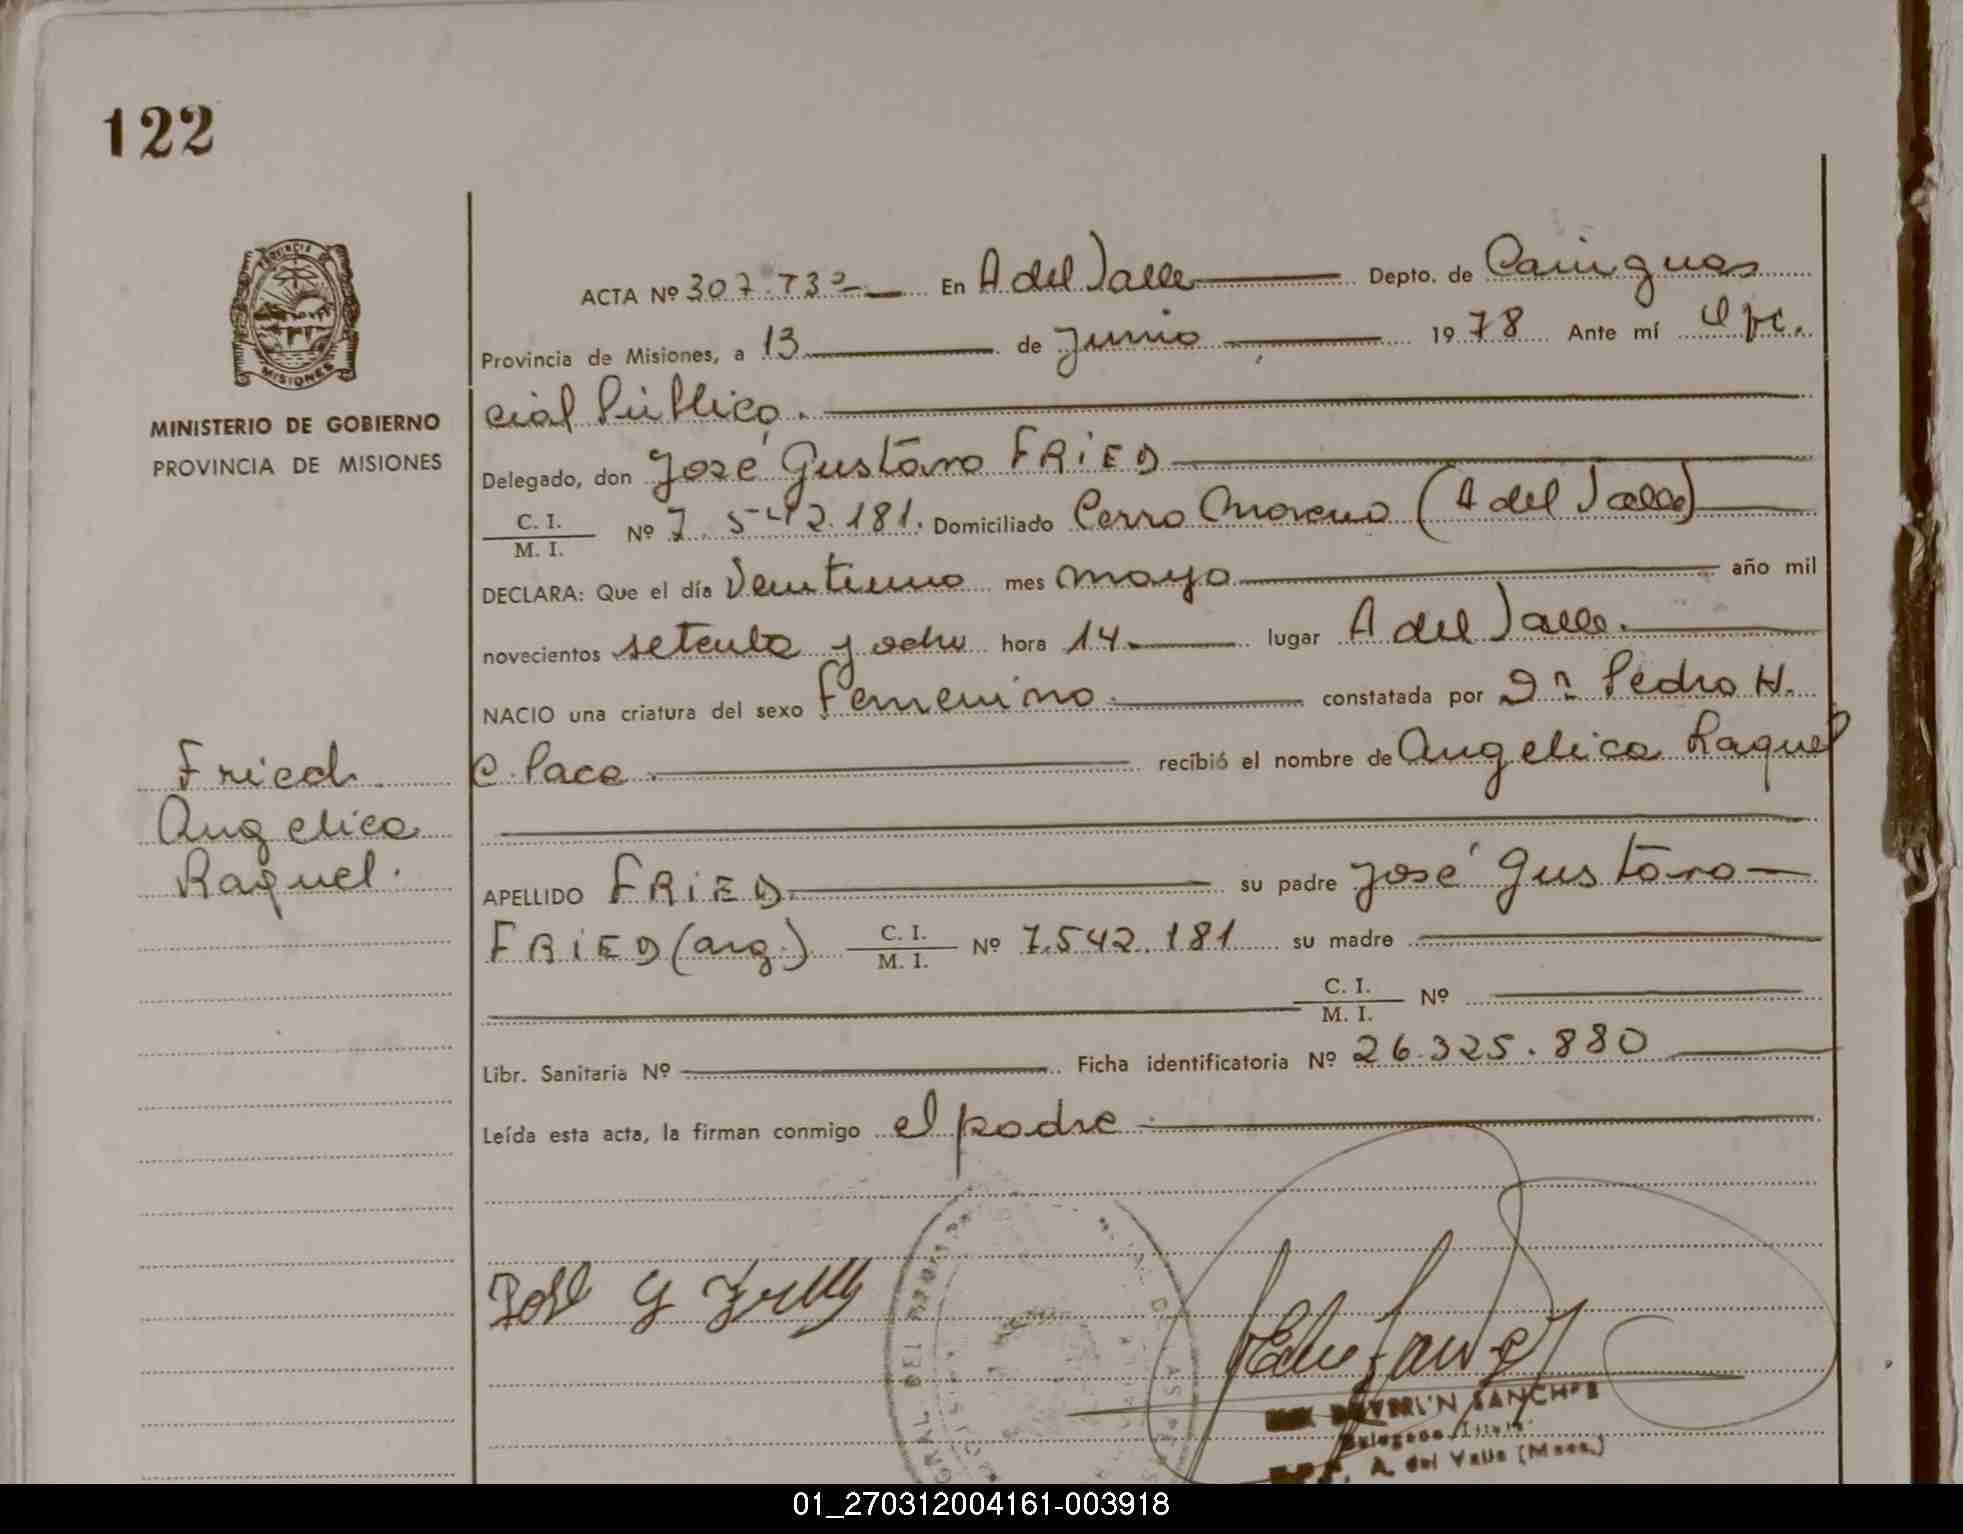 122
PROVINCIA DE
MISIONES
MINISTERIO DE GOBIERNO
PROVINCIA DE MISIONES
Fried
Angelica
Raquel.
ACTA Nº 307.733 En A del Valle Depto. de Cainguas
Provincia de Misiones, a 13 de Junio 1978 Ante mí Ofi.
cial Público.
Delegado, don José Gustavo FRiED
C. I.
M. I. Nº 7.542.181. Domiciliado Cerro Moreno (A del Valle)
DECLARA: Que el día Veintiuno mes mayo año mil
novecientos setenta y ocho hora 14 lugar A del Valle.
NACIO una criatura del sexo femenino constatada por Dr. Pedro H.
C. Pace recibió el nombre de Angelica Raquel
APELLIDO FRiED su padre José Gustavo
FRiED (arg.) C. I.
M. I. Nº 7.542.181 su madre
C. I.
M. I. Nº
Libr. Sanitaria Nº Ficha identificatoria Nº 26.325.880
Leída esta acta, la firman conmigo el padre
José G
SANCHEZ
A. del Valle (Mnes.)
01_270312004161-003918